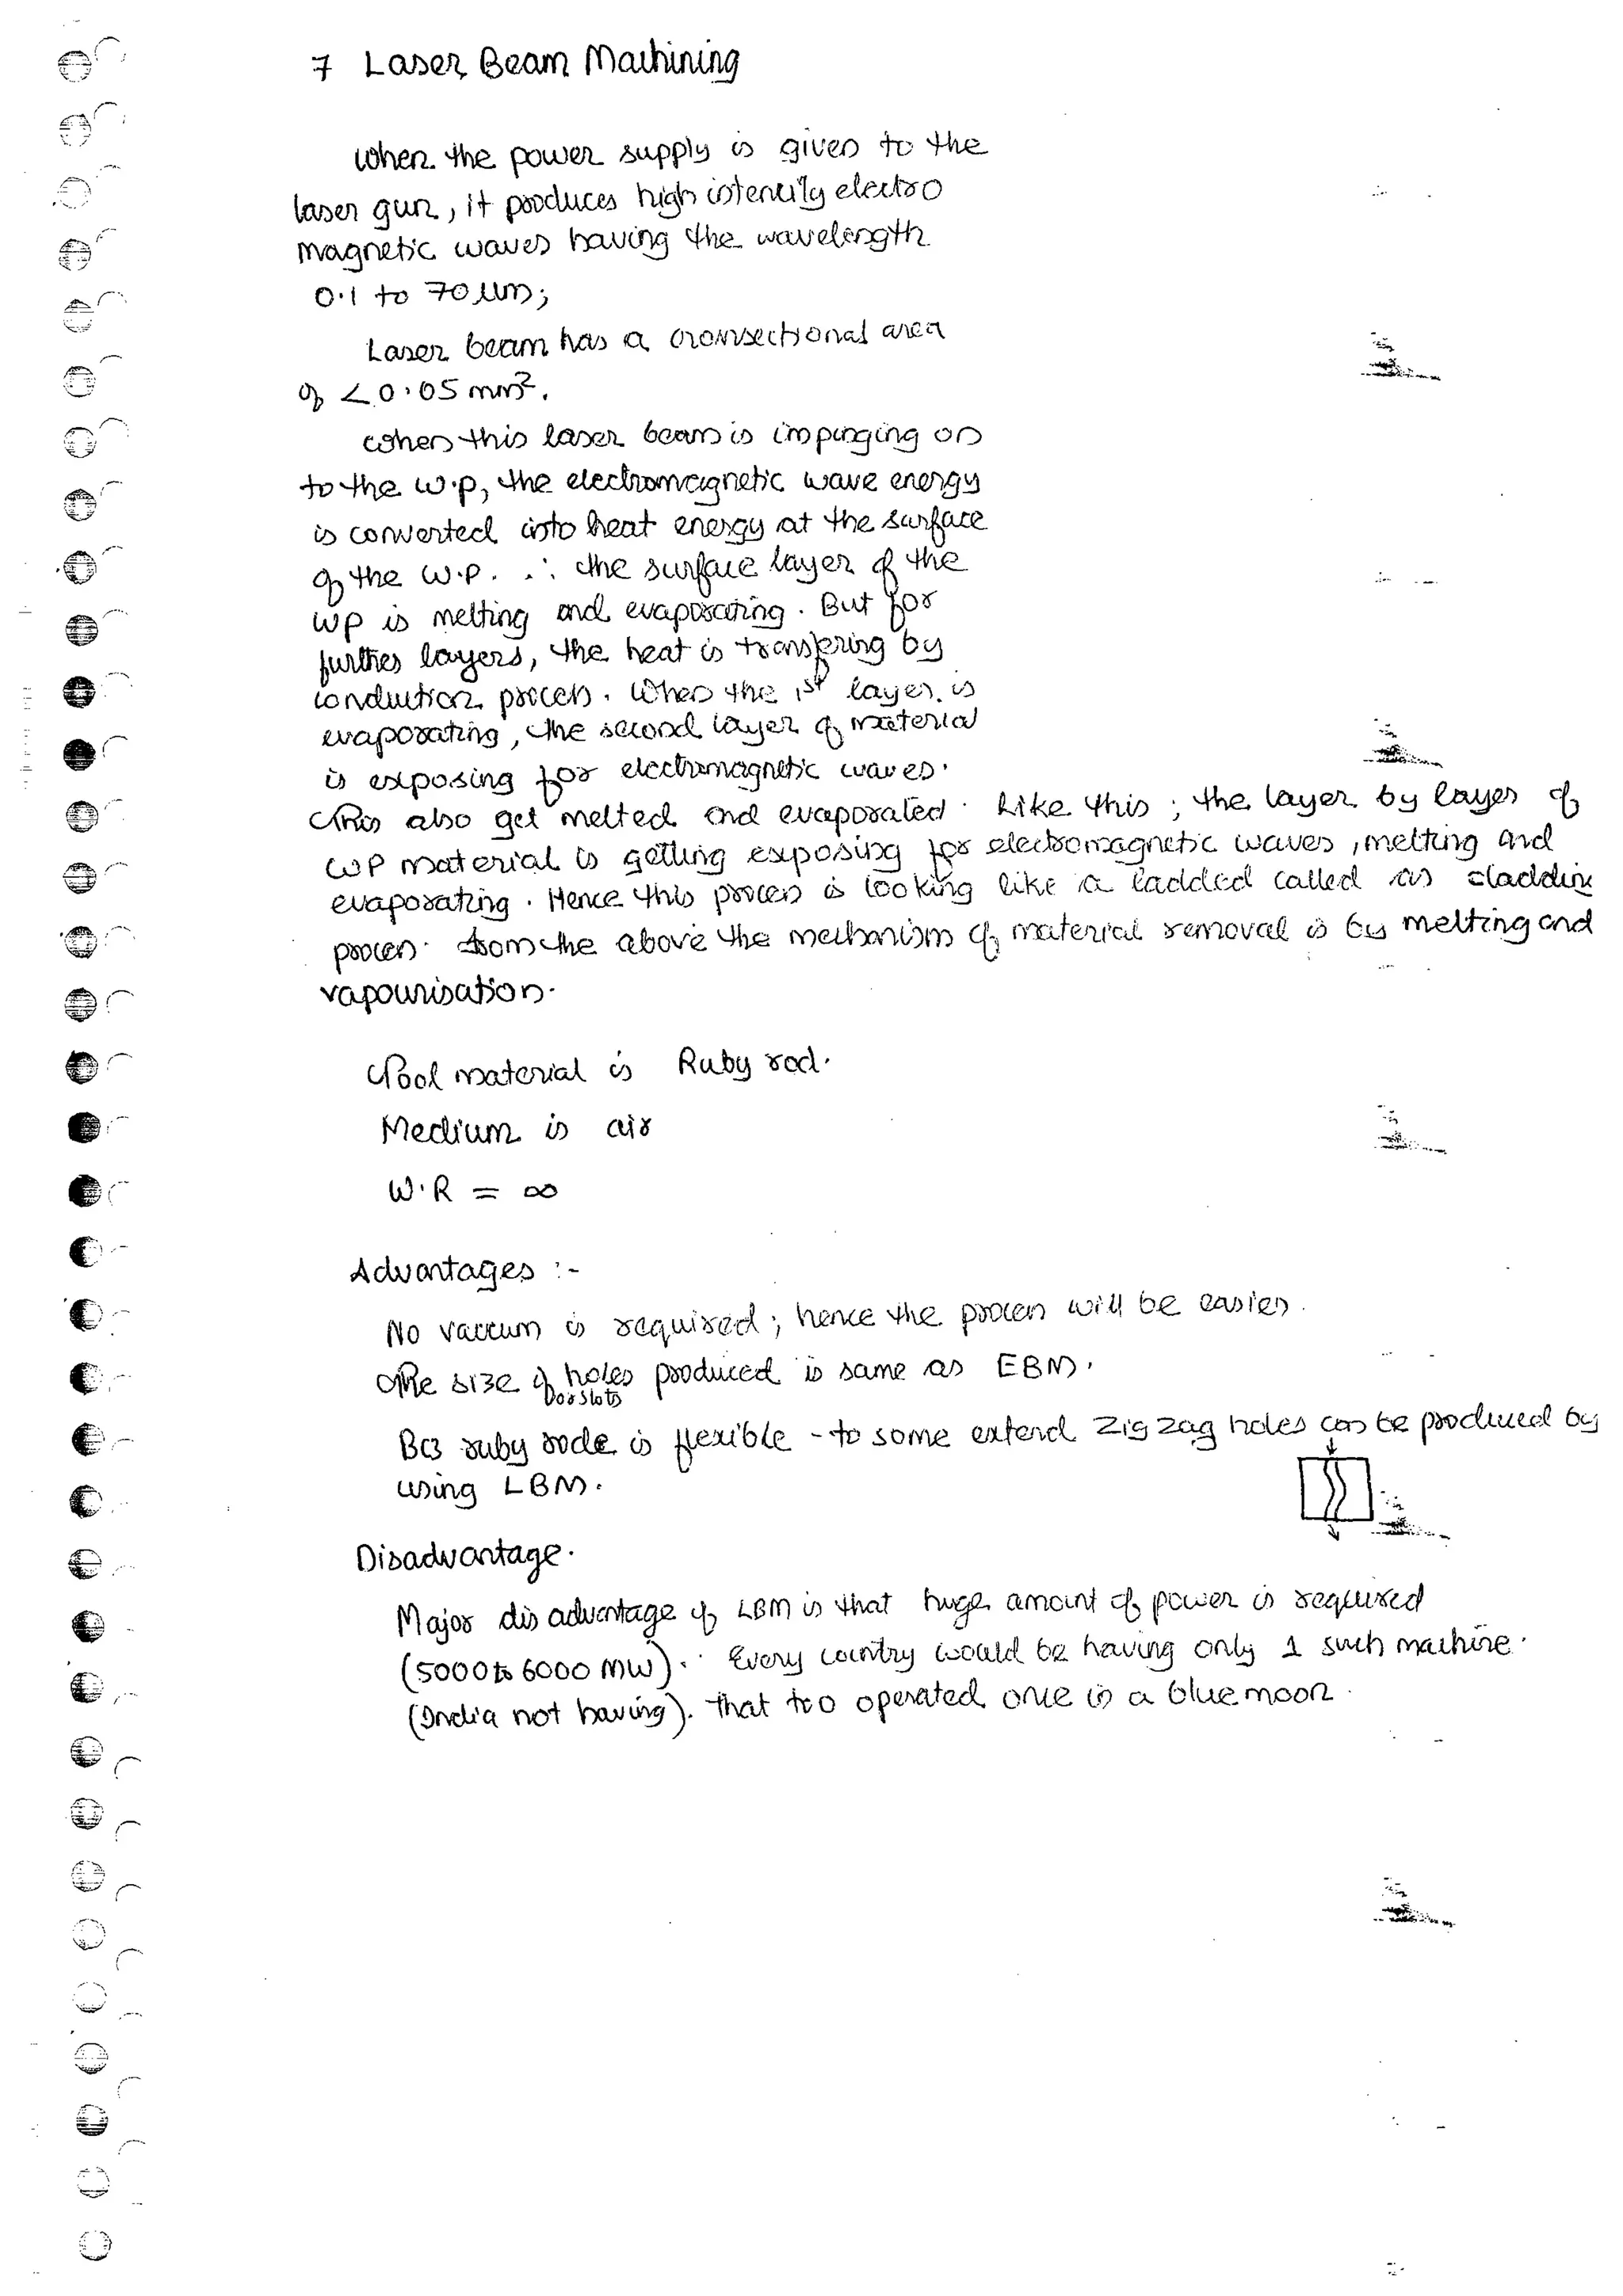 7 Laser Beam Machining
When the power supply is given to the
laser gun, it produces high intencity electro
magnetic waves having the wavelength
0.1 to 70 µm;
Laser beam has a crossectional area
of < 0.05 mm².
When this laser beam is impinging on
to the w.p, the electromagnetic wave energy
is converted into heat energy at the surface
of the w.p. ∴ the surface layer of the
wp is melting and evaporating. But for
further layers, the heat is transfering by
conduction process. When the 1st layer is
evaporating, the second layer of material
is exposing for electromagnetic waves.
This also get melted and evaporated. Like this; the layer by layer of
WP material is getting exposing for electromagnetic waves, melting and
evaporating. Hence this process is looking like a ladded called as cladding
process. from the above the mechanism of material removal is by melting and
vapourisation.
Tool material is Ruby rod.
Medium is air
W.R = ∞
Advantages :-
No vaccum is required; hence the process will be easier.
The size of holes produced is same as EBM.
or slots
BCS ruby rode is flexible - to some extend zig zag holes can be produced by
using LBM.
Disadvantage.
Major dis advantage of LBM is that huge amount of power is required
(5000 to 6000 MW). Every country would be having only 1 such machine.
(India not having). That too operated once in a blue moon.